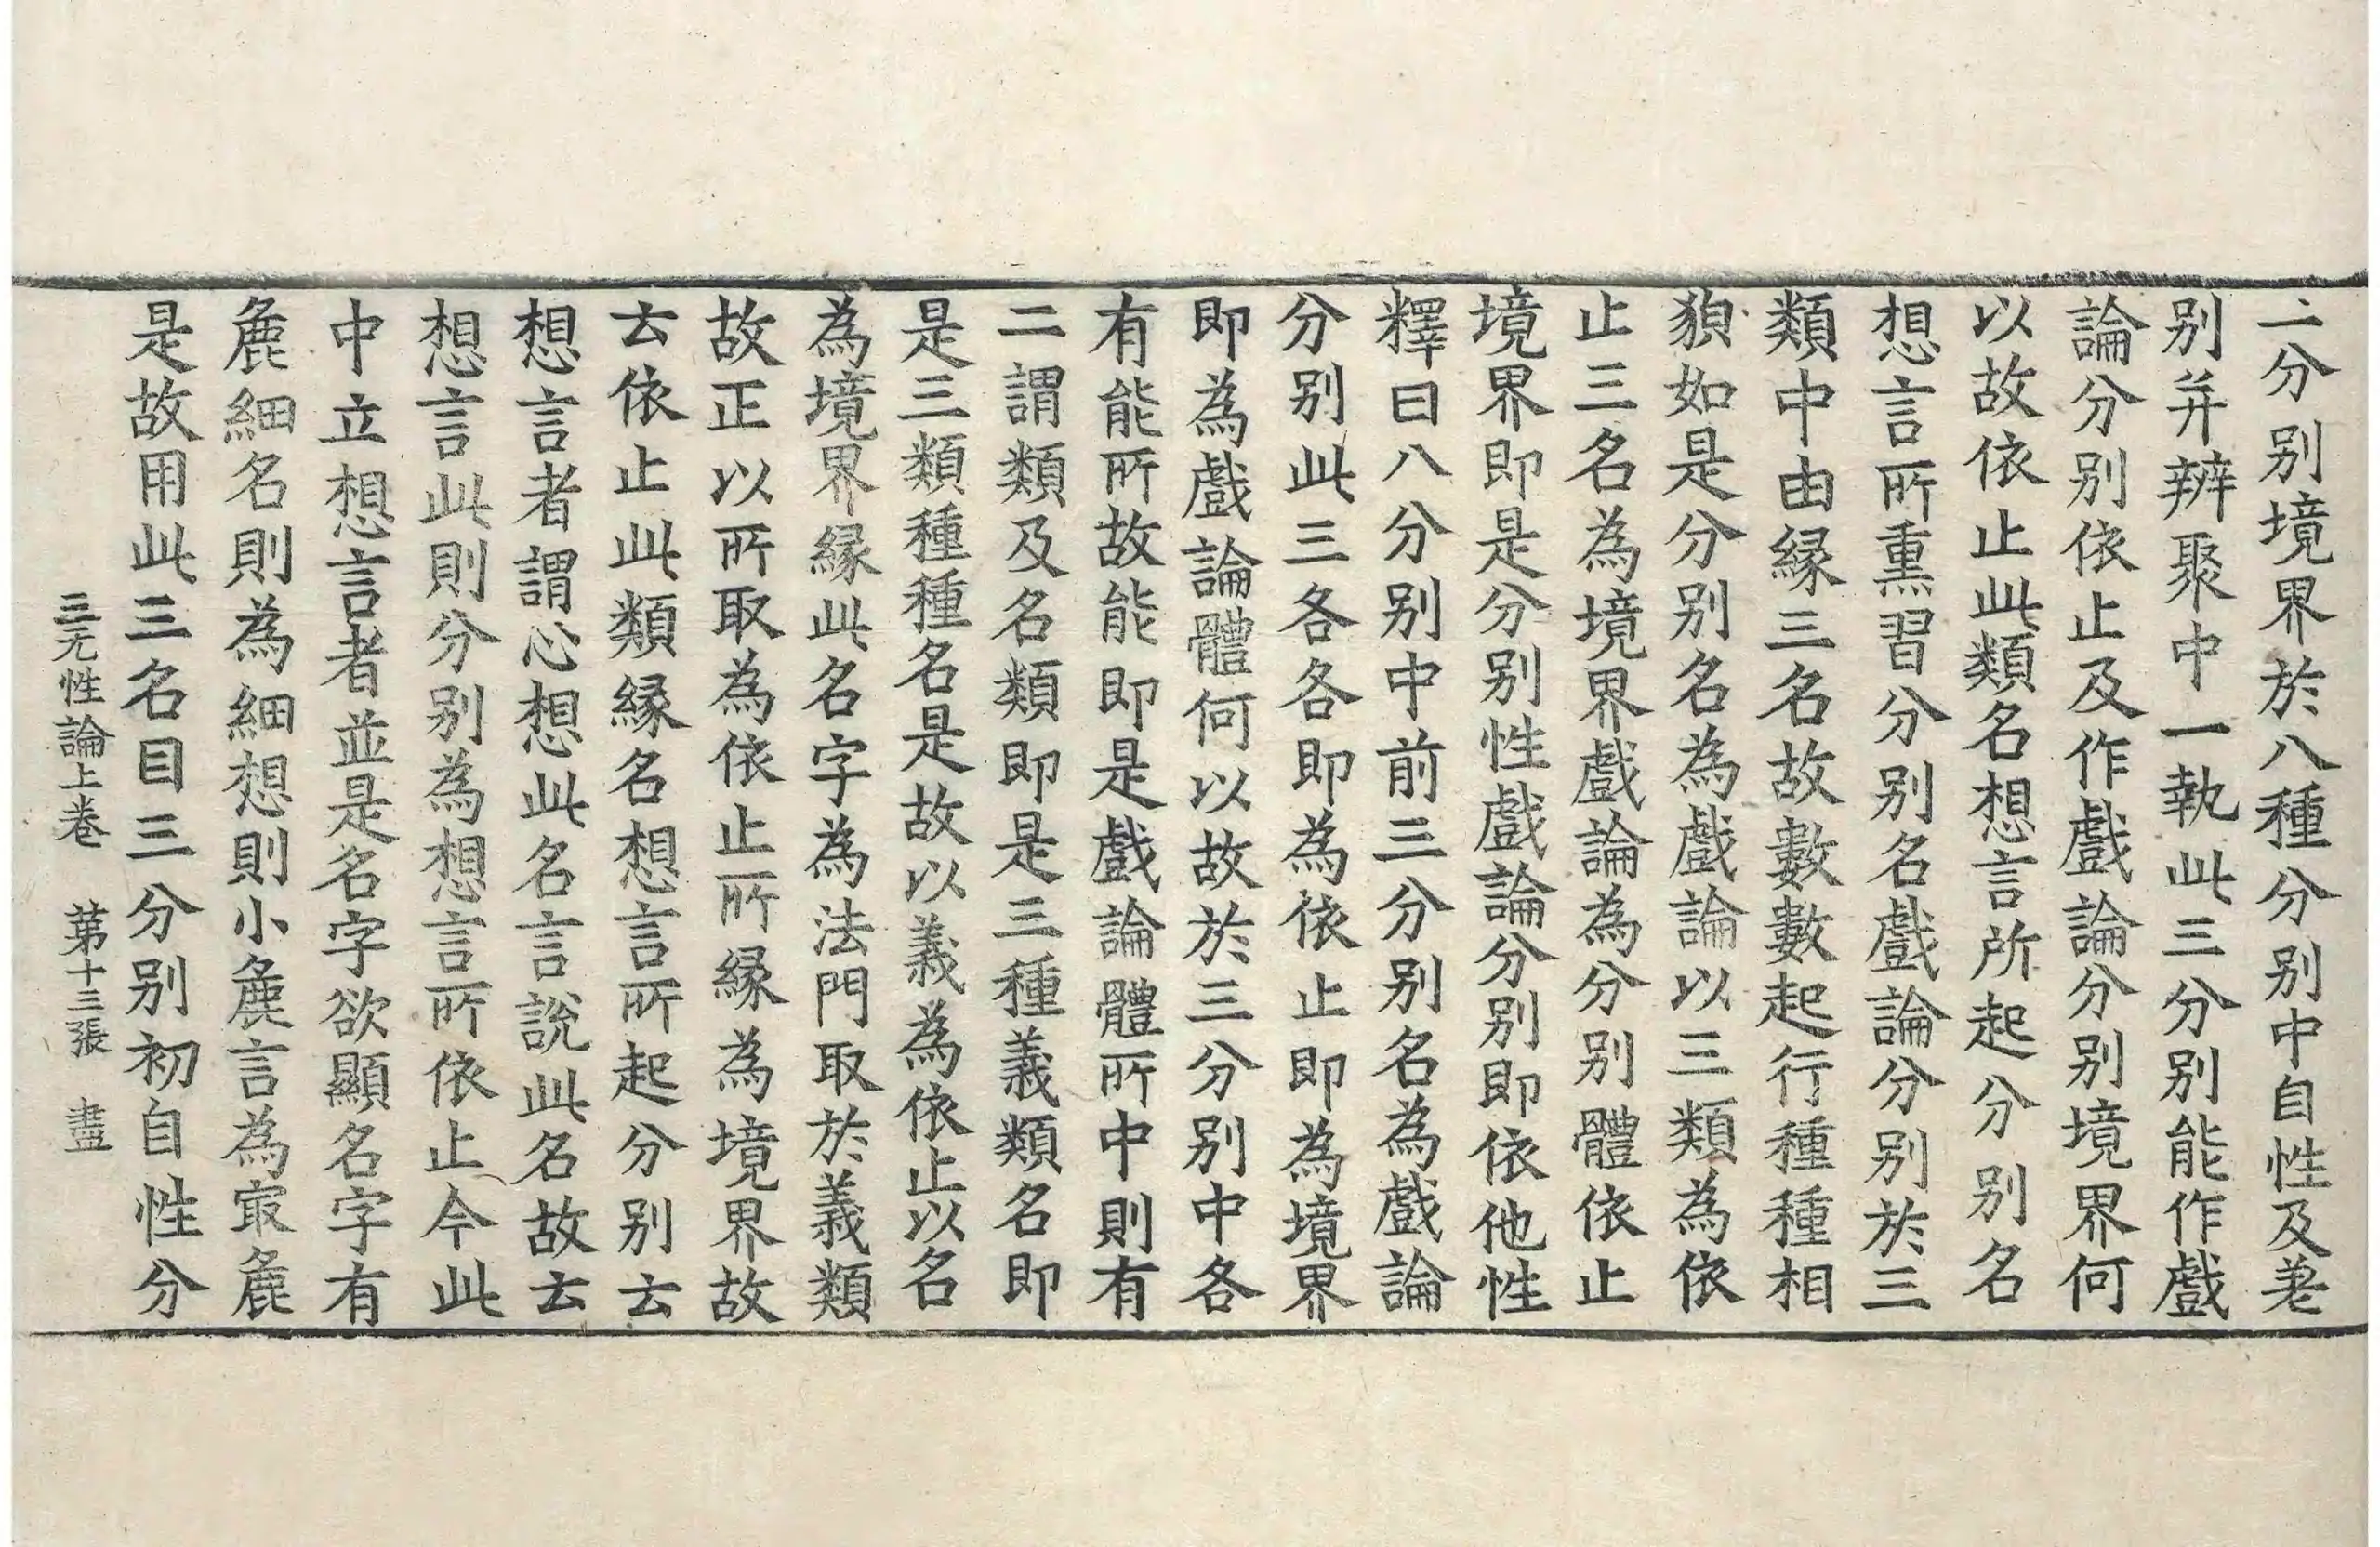 二分别境界於八種分别中自性及差
别并辨聚中一執此三分别能作戲
論分别依止及作戲論分别境界何
以故依止此類名想言所起分别名
想言所熏習分别名戲論分别於三
類中由縁三名故數數起行種種相
㹸如是分别名為戲論以三類為依
止三名為境界戲論為分别體依止
境界即是分别性戲論分别即依他性
釋曰八分别中前三分别名為戲論
分别此三各各即為依止即為境界
即為戲論體何以故於三分别中各
有能所故能即是戲論體所中則有
二謂類及名類即是三種義類名即
是三類種種名是故以義為依止以名
為境界縁此名字為法門取於義類
故正以所取為依止所縁為境界故
云依止此類縁名想言所起分别云
想言者謂心想此名言說此名故云
想言此則分别為想言所依止今此
中立想言者並是名字欲顯名字有
麁細名則為細想則小麁言為㝡麁
是故用此三名目三分别初自性分
三无性論上卷　苐十三張　盡